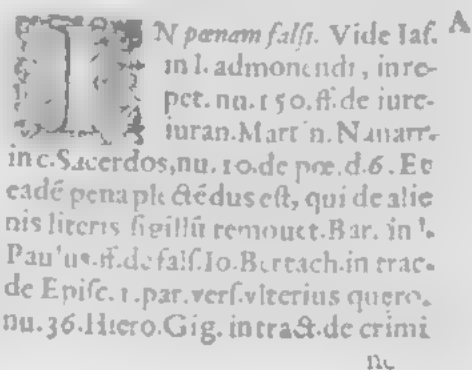 IN pœnam falſi. Vide Iaſ. A
in l. admonendi, in re-
pet. nu. 150. ff. de iure-
iuran. Martin. Nauarr.
in c. Sacerdos, nu. 10. de pœ. d. 6. Et
eadē pena plectēdus eſt, qui de alie
nis literis ſigillū remouet. Bar. in l.
Paulus. ff. de falſ. Io. Bertach. in trac.
de Epiſc. 1. par. verſ. vlterius quero.
nu. 36. Hiero. Gig. in tract. de crimi
ne